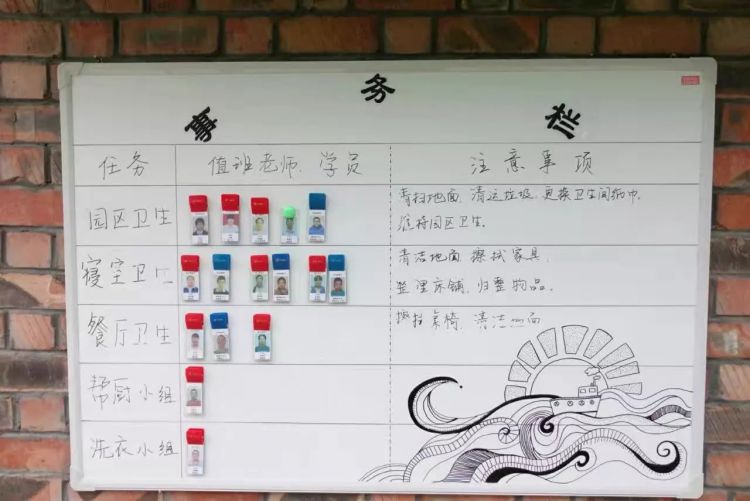 事务栏
任务 值班老师、学员 注意事项
园区卫生 清扫地面、清运垃圾、更换卫生间纸巾、
维持园区卫生。
寝室卫生 清洁地面、擦拭家具、
整理床铺、归整物品。
餐厅卫生 擦拉桌椅、清洁地面
帮厨小组
洗衣小组